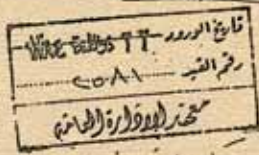 تاريخ الورود ٢٢
رقم القيد ٢٠٨١
معهد الادارة العامة